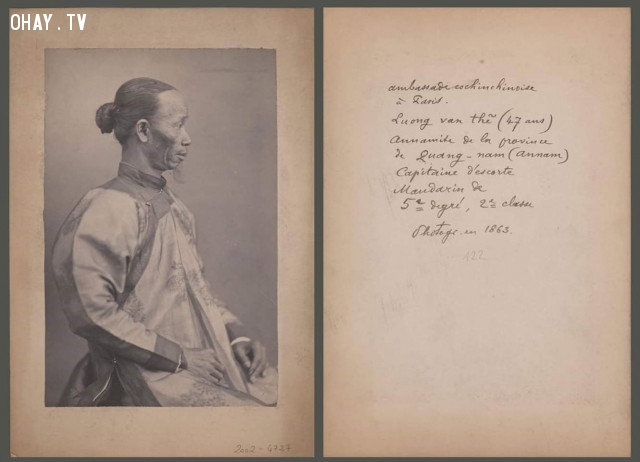 OHAY.TV
ambassade cochinchinoise
à Paris.
Luong van thê (47 ans)
Annamite de la province
de Quang-nam (Annam)
Capitaine d'escorte
Mandarin de
5e degré, 2e classe
Photogr. en 1863.
122